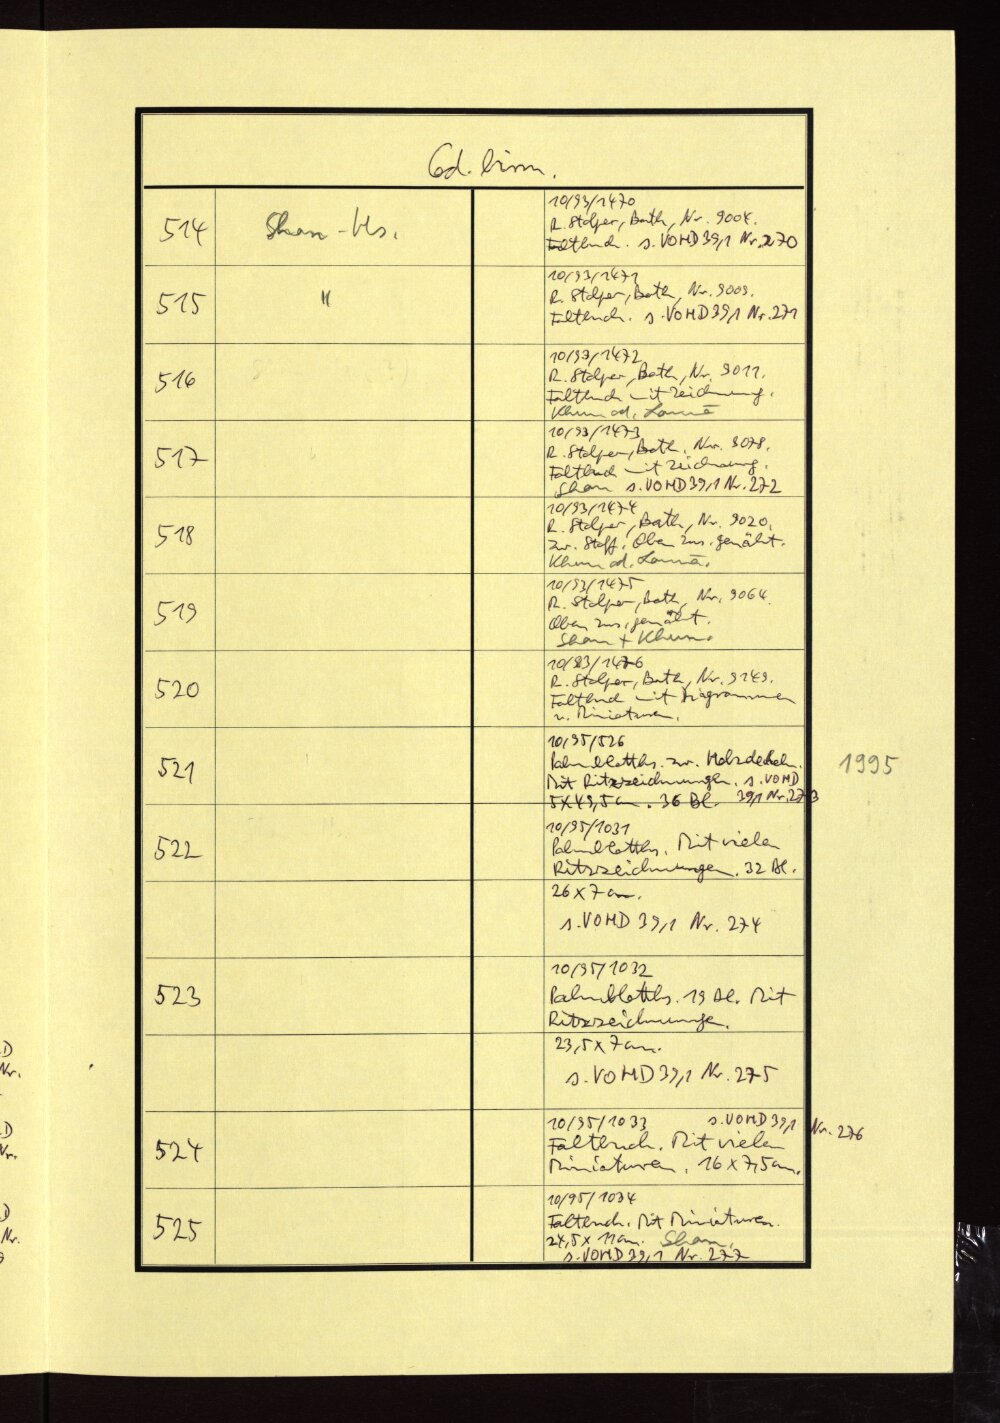 Cod. birm.
514 Shan-Hs. 10/93/1470
R. Stolper, Bath, Nr. 9004.
Faltbuch. s. VOHD 39,1 Nr. 270
515 " 10/93/1471
R. Stolper, Bath, Nr. 9009.
Faltbuch. s. VOHD 39,1 Nr. 271
516 10/93/1472
R. Stolper, Bath, Nr. 9011.
Faltbuch mit Zeichnung.
Khün od. Lannā
517 10/93/1473
R. Stolper, Bath, Nr. 9078.
Faltbuch mit Zeichnung.
Shan s. VOHD 39,1 Nr. 272
518 10/93/1474
R. Stolper, Bath, Nr. 9020.
Zw. Stoff. Oben zus. genäht.
Khün od. Lannā.
519 10/93/1475
R. Stolper, Bath, Nr. 9064.
Oben zus. genäht.
Shan + Khün.
520 10/93/1476
R. Stolper, Bath, Nr. 9149.
Faltbuch mit Diagrammen
u. Miniaturen.
521 10/95/526
Palmblatths. zw. Holzdeckeln. 1995
Mit Ritzzeichnungen. s. VOHD
5x49,5 cm. 36 Bl. 39,1 Nr. 273
522 10/95/1031
Palmblatths. Mit vielen
Ritzzeichnungen. 32 Bl.
26 x 7 cm.
s. VOHD 39,1 Nr. 274
523 10/95/1032
Palmblatths. 19 Bl. Mit
Ritzzeichnungen.
23,5 x 7 cm.
s. VOHD 39,1 Nr. 275
524 10/95/1033 s. VOHD 39,1 Nr. 276
Faltbuch. Mit vielen
Miniaturen. 16 x 7,5 cm.
525 10/95/1034
Faltbuch. Mit Miniaturen.
24,5 x 11 cm. Shan.
s. VOHD 39,1 Nr. 277